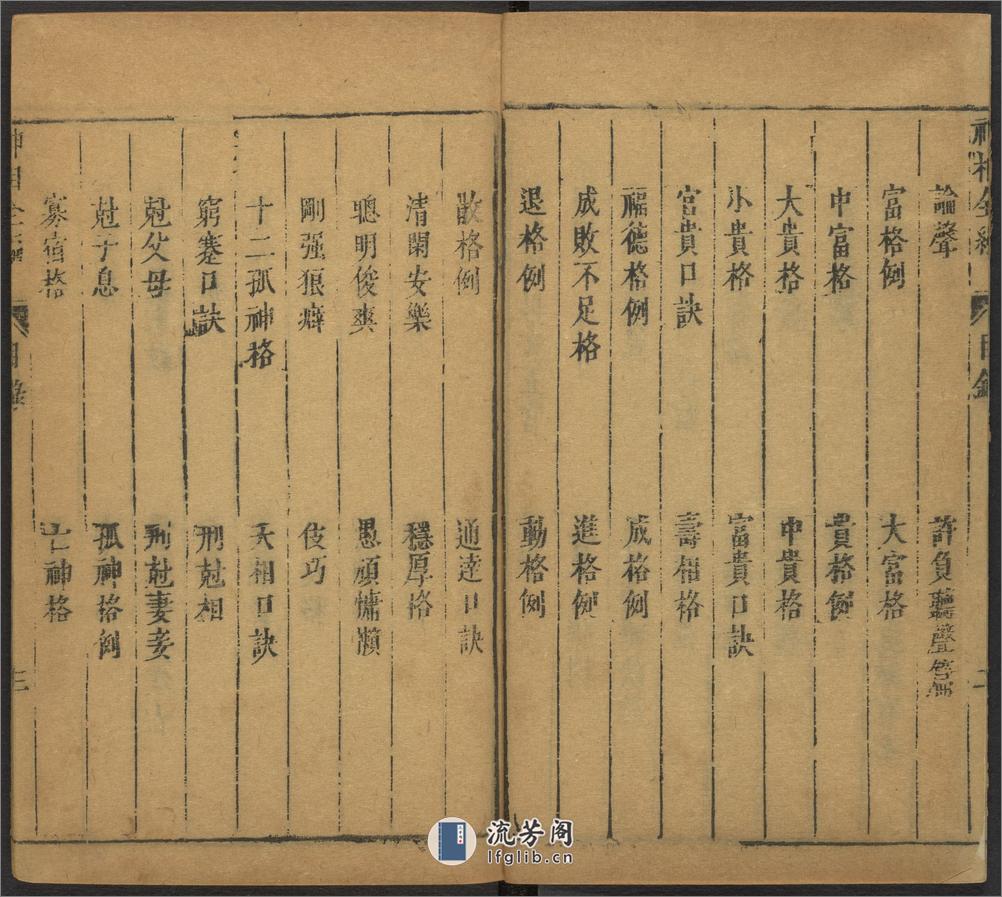 神相全編 目錄 二
論聲 許負聽聲
富格例 大富格
中富格 貴格例
大貴格 中貴格
小貴格 富貴口訣
官貴口訣 壽相格
福德格例 成格例
成敗不足格 進格例
退格例 動格例
散格例 通達口訣
清閑安樂 穩厚格
聰明俊爽 愚頑慵懶
剛强狠癖 伎巧
十二孤神格 夭相口訣
窮塞口訣 刑尅相
尅父母 刑尅妻妾
尅子息 孤神格例
寡宿格 亡神格
神相全編 目錄 三
流芳阁
lfglib.cn